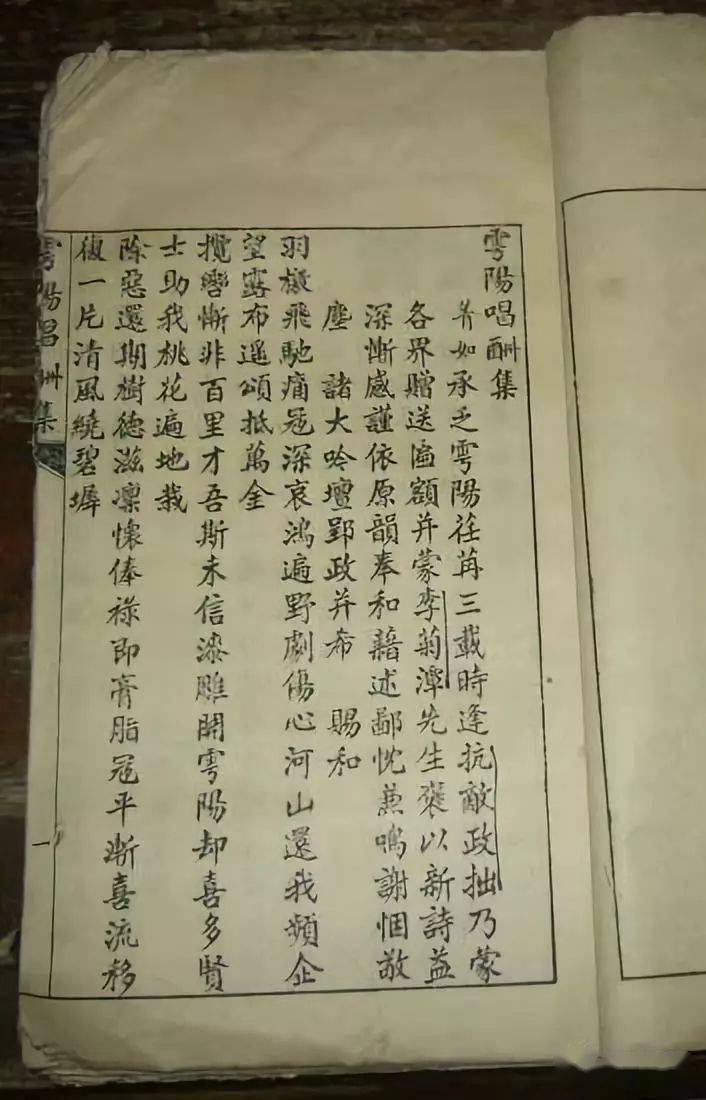 雩陽唱酬集
菁如承乏雩陽荏苒三載時逢抗敵政拙乃蒙
各界贈送匾額并蒙李菊潭先生褒以新詩益
深慚感謹依原韻奉和藉述鄙忱兼鳴謝悃敬
塵 諸大吟壇郢政并希 賜和
羽檄飛馳痛寇深哀鴻遍野劇傷心河山還我頻企
望露布遥頌抵萬金
攬轡慚非百里才吾斯未信漆雕開雩陽却喜多賢
士助我桃花遍地栽
除惡還期樹德滋凜懷俸祿即膏脂寇平漸喜流移
復一片清風繞碧墀
雩陽唱酬集
一